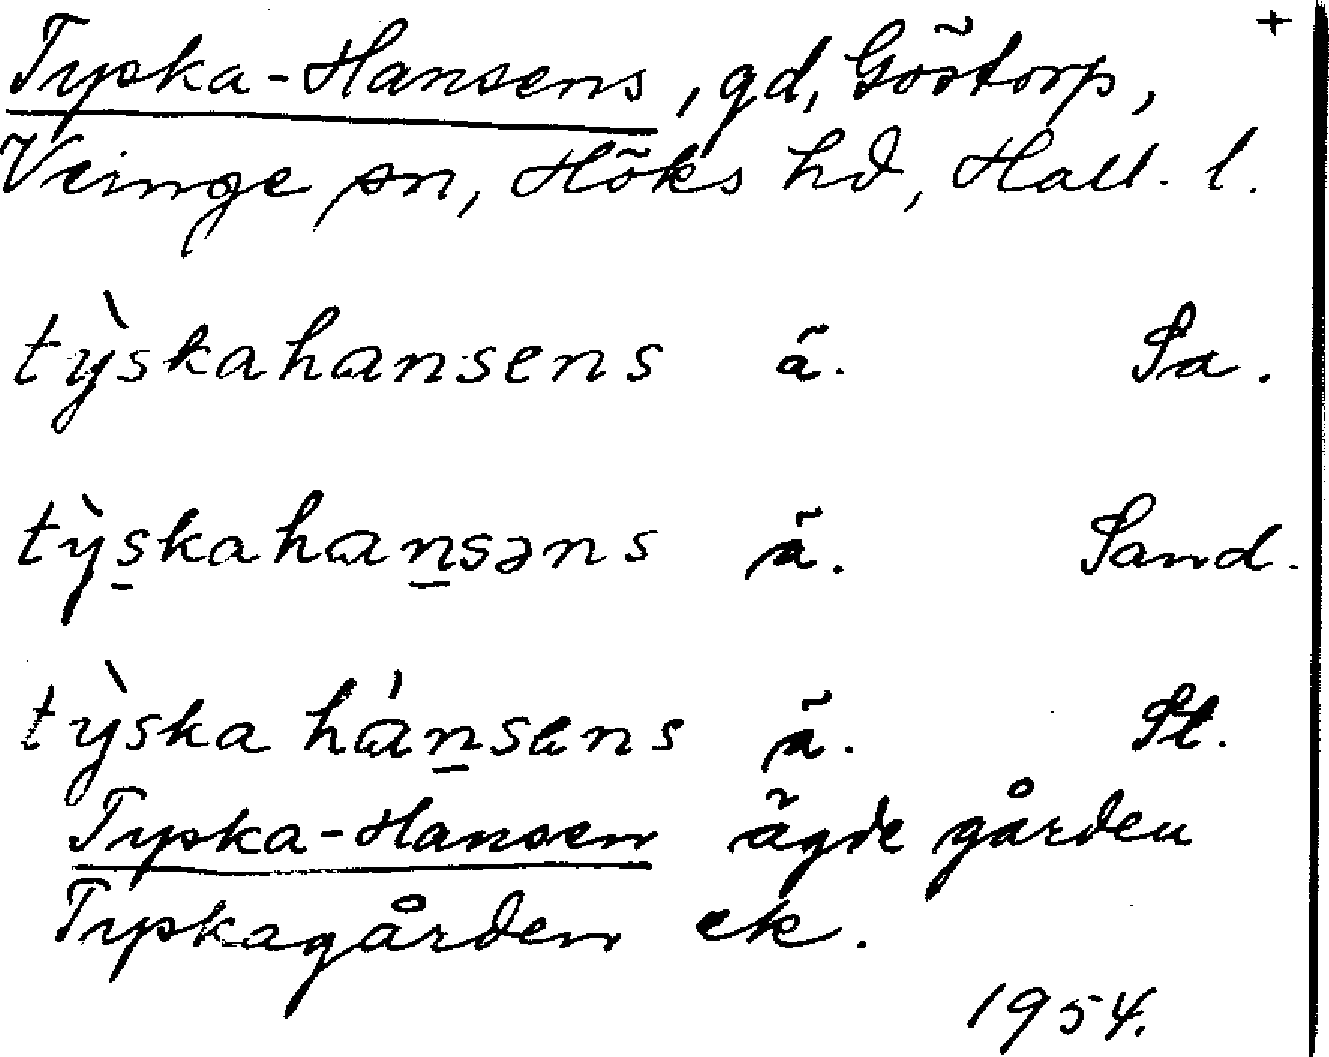 +
Tyska-Hansens, gd, Göstorp,
Veinge sn, Höks hd, Hall. l.
tỳskahansens ä. Sa.
tỳs̱kahaṉsəns ä. Sand.
tỳska háṉsens ä. St.
Tyska-Hansen ägde gården
Tyskagården ek.
1954.